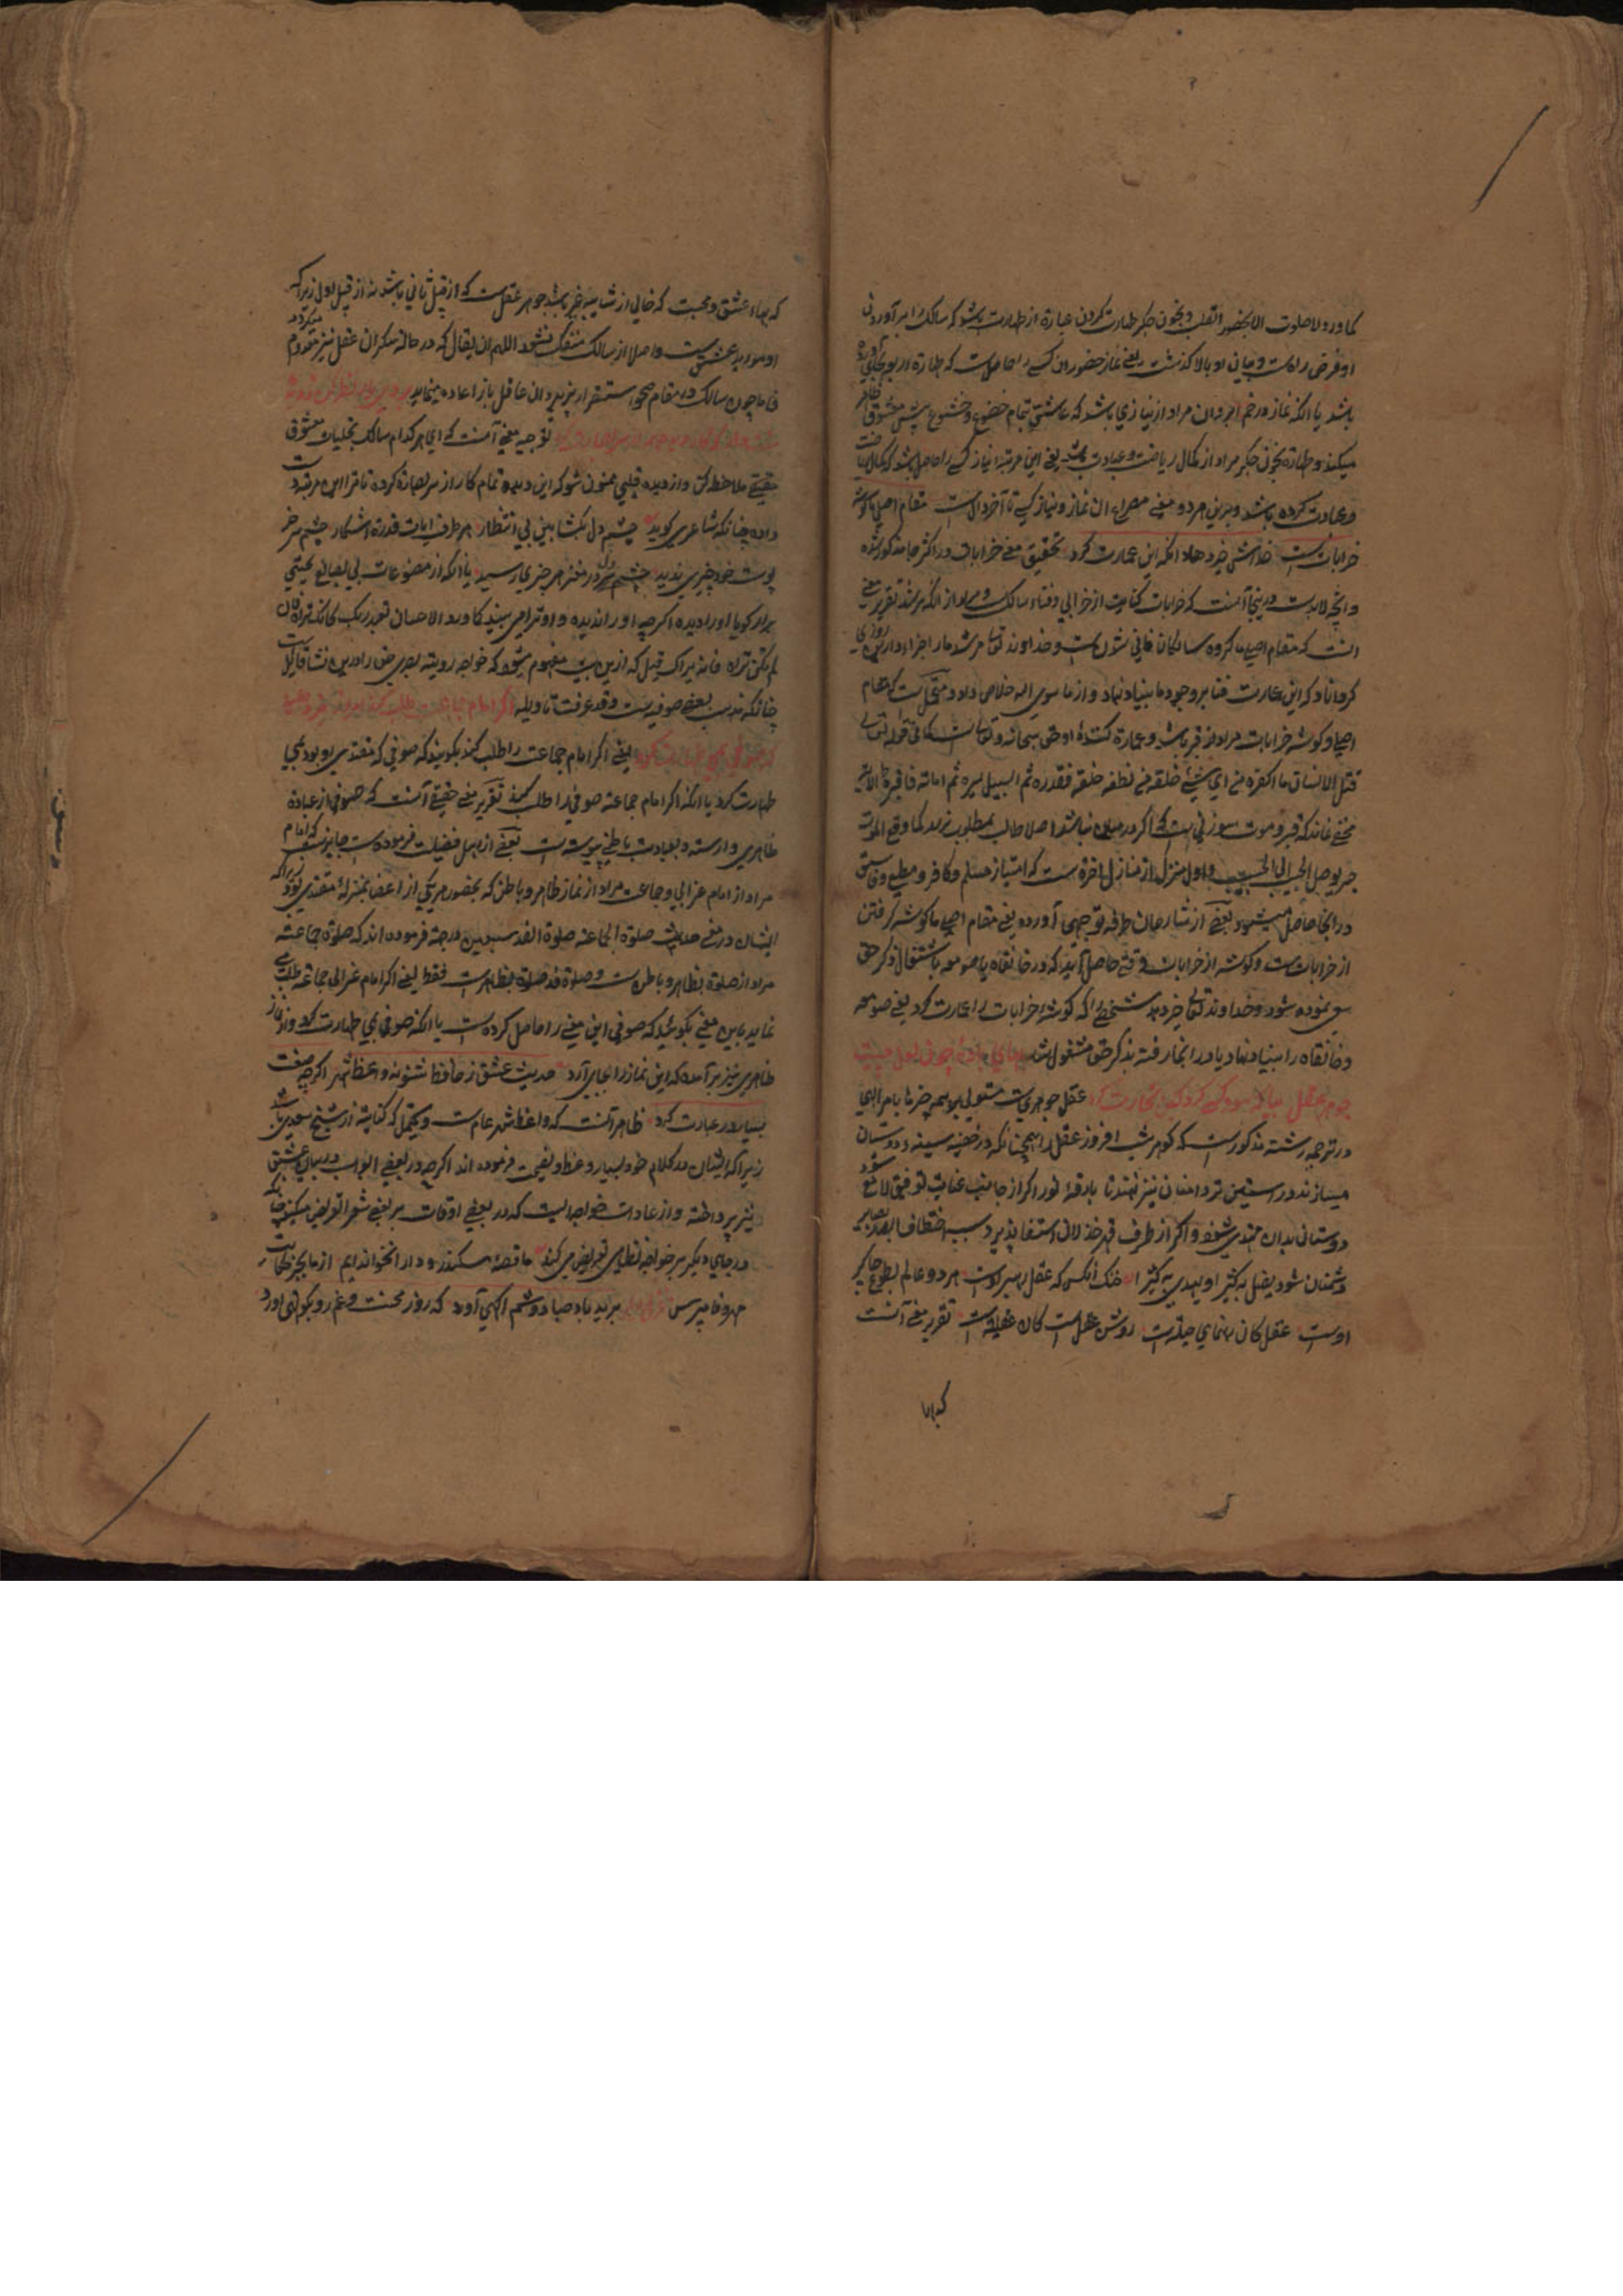 کما ورد لا صلوت الا بحضور القلب و بخون جکر طهارت کردن عبارة از طهارت باشد که سالک را بر آوردن
او فرض راه است یعنی نماز حضور ان کسے را حاصل است که طهارة او بخون جکر
باشد یا انکه نماز در خم ابروان مراد از نیازی باشد که عاشق بتمام خضوع و خشوع پیش معشوق
میکند و طهارة بخون جکر مراد از کمال ریاضت و عبادت باشد یعنی این مرتبه نیاز کسے را حاصل باشد که بکمال ریاضت
و عبادت کرده باشد و برین هر دو معنے مصراع ان نماز و نیاز کسے تا آخر دال است مقام اصلی ما کوشهٔ
خرابات است خداش خیر دهاد انکه این عمارت کرد تحقیق معنے خرابات در اکثر جا مذکور شده
و انچه لابد است درینجا آنست که خرابات کنایت از خرابی و فناء سالک و مراد از انکه مرشد تقریر معنے
انست که مقام اصلی ما کروه سالکان فانی شدن است و خداوند تعالی مرشد ما را جزاء دارین روزی
کرداناد که این عمارت فنا بر وجود ما بنیاد نهاد و از ما سوی الله خلاص داد و محتمل است که مقام
اصلی و کوشه خرابات مراد از قبر باشد و عمارة کنندهٔ او حق سبحانه و تعالی است کما فی قوله تعالی
قتل الانسان ما اکفره من ای شیء خلقه من نطفة خلقه فقدره ثم السبیل یسره ثم اماته فاقبره الآیة
مخفی نماند که قبر و موت سوزنی است که اکر در میان نباشد اصلا طالب بمطلوب نرسد کما وقع الموت
جسر یوصل الحبیب الی الحبیب و اول منزل از منازل اخرة است که امتیاز مسلم و کافر و مطیع و فاسق
در انجا حاصل میشود بعضے از شارحان طرفه توجیهی آورده یعنی مقام اصلی ما کوشه کرفتن
از خرابات است و کوشه از خرابات وقتے حاصل آید که در خانقاه یا صومعه باشتغال ذکر حق
سعی نموده شود و خداوند تعالی خیر دهد شخصے را که کوشه خرابات را عمارت کرد یعنی صومعه
و خانقاه را بنیاد نهاد یا در انجا رفته بذکر حق مشغول شد بهای بادهٔ چون لعل چیست
جوهر عقل بیا که سود کسے کرد که این تجارت کرد عقل جوهریست مستولی بر همه چیزها بامر الهی
در ترجمه رشته مذکور است که کوهر شب افروز عقل را همچنانکه در خفیه سینه دوستان
میسازند در استین تردامنان نیز نهند تا بارقهٔ نور اکر از جانب عنایت توفیق لامع شود
دوستان بدان مهتدی شوند و اکر از طرف قهر خذلان استفاد پذیرد سبب اختطاف ابصار بصایر
دشمنان شود یضل به کثیرا و یهدی به کثیرا خنک انکس که عقل رهبر اوست هر دو عالم بطوع چاکر
اوست عقل کان رهنمای حیلت روشن عقل است کان عقیلت تقریر معنے آنست
که بهاء
که بهاء عشق و محبت که خالی از شایبه غیر باشد جوهر عقلست که از قبیل ثانی باشد نه از قبیل اول زیرا که
او موءید عشق است و اصلا از سالک منفک نشود اللهم ان یقال که در حالة سکر ان عقل نیز معدوم میکردد
فاما چون سالک در مقام صحو استقرار پذیرد ان عاقل باز اعاده مینماید
توجیه معنے آنست که ای هر کدام سالک تجلیات معشوق
حقیقے ملاحظه کن و از دیده قلبی ممنون شو که این دیده تمام کار از سر بصارة کرده تا ترا این مرتبه دست
داده چنانکه شاعری کوید چشم دل بکشا ببین بی انتظار هر طرف ایات قدرة اشکار چشم سر جز
پوست خود چیزی ندید چشم سر در مغز هر چیزی رسید یا انکه از مصنوعات بی بصانع بحیثی
برار کویا او را دیده اکر چه او را ندیده و او ترا می بیند کما ورد الاحسان تعبد ربک کانک تراه فان
لم تکن تراه فانه یراک قیل که ازین بیت مفهوم میشود که خواجه رویته بصری حق را در این نشأ قایل است
چنانکه مذهب بعضے صوفیه است و قد عرفت تاویله اکر امام جماعت طلب کند امروز خبر دهید
که صوفی بمی طهارت کرد یعنی اکر امام جماعت را طلب کند بکویند که صوفی که مقتدی بود بمی
طهارت کرد یا انکه اکر امام جماعة صوفی را طلب کند تقریر معنے حقیقے آنست که صوفی از عبادة
ظاهری وارسته و بعبادت باطنی پیوسته است بعضے از اهل فضیلت فرموده است جایز است که امام
مراد از امام غزالی و جماعت مراد از نماز ظاهر و باطن که بحضور هر یکی از اعضا بمنزلهٔ مقتدی بود زیراکه
ایشان در معنے حدیث صلوة الجماعة صلوة الفذ بسبعین درجة فرموده اند که صلوة جماعت
مراد از صلوة بظاهر و باطن است و صلوة فذ صلوة بظاهر است فقط یعنی اکر امام غزالی جماعة طلب
نماید باین معنے بکوئید که صوفی این معنے را حاصل کرده است یا انکه صوفی بمی طهارت کرد و از نماز
ظاهری نیز بر آمده که این نماز را بجا می آرد حدیث عشق ز حافظ شنو نه واعظ شهر اکر چه صنعت
بسیار در عبارت کرد ظاهر آنست که واعظ شهر عام است و یحتمل که کنایة از شیخ سعدی باشد
زیرا که ایشان در کلام خود بسیار وعظ و نصیحت فرموده اند اکر چه در بعضے ابواب در بیان عشق
نیز پرداخته و از عادات خواجه ایست که در بعضے اوقات بر بعضے شعرا تعریض میکند چنانکه
در جای دیکر بر خواجه نظامی تعریض می کند ما قصهٔ سکندر و دارا نخوانده ایم از ما بجز حکایت
مهر و وفا مپرس برید باد صبا دوشم اکهی آورد که روز محنت و غم رو بکوتهی آورد